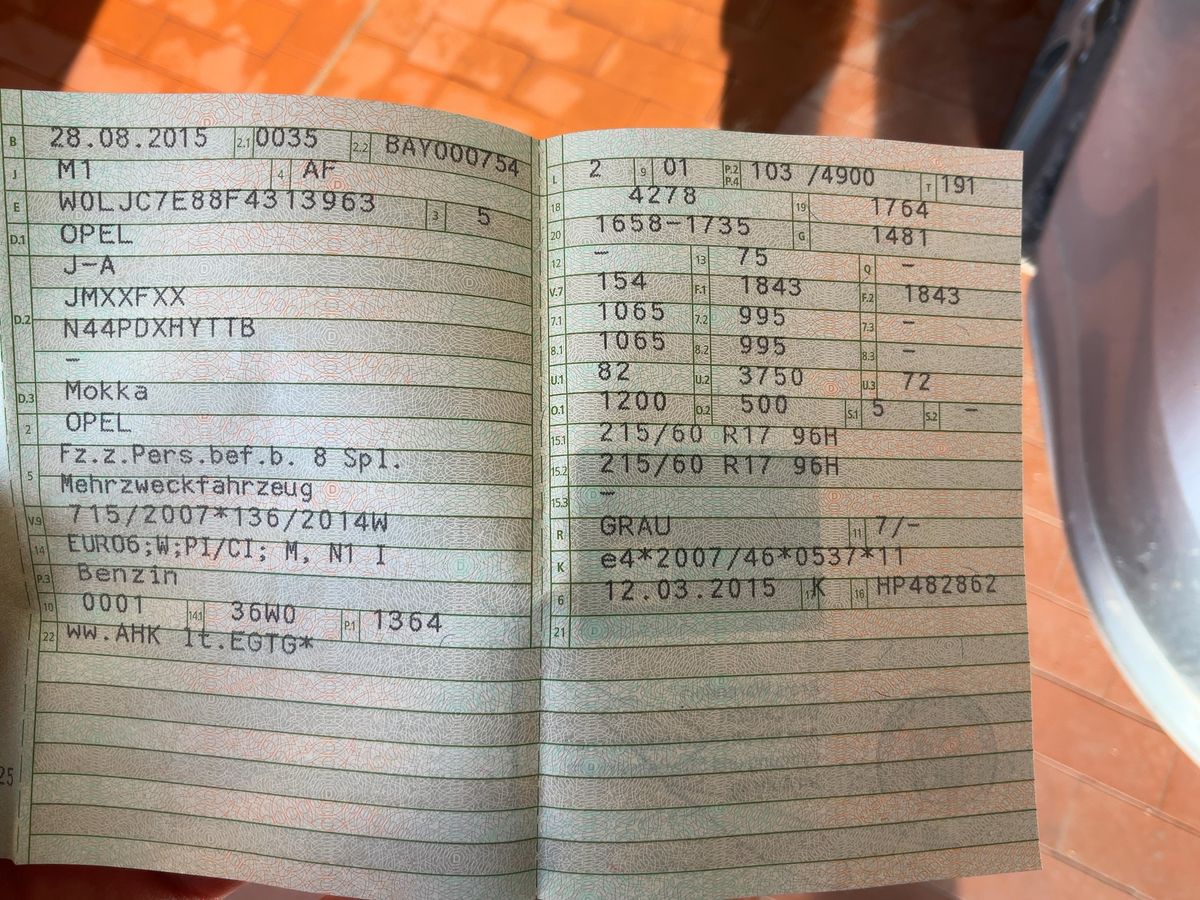 B 28.08.2015 2.1 0035 2.2 BAY000754
J M1 4 AF
E W0LJC7E88F4313963 3 5
D.1 OPEL
J-A
D.2 JMXXFXX
N44PDXHYTTB
–
D.3 Mokka
2 OPEL
5 Fz.z.Pers.bef.b. 8 Spl.
Mehrzweckfahrzeug
V.9 715/2007*136/2014W
14 EURO6;W;PI/CI; M, N1 I
P.3 Benzin
10 0001 14.1 36W0 P.1 1364
22 ww.AHK lt.EGTG*
25
L 2 9 01 P.2 P.4 103 /4900 T 191
18 4278 19 1764
20 1658-1735 G 1481
12 – 13 75 Q –
V.7 154 F.1 1843 F.2 1843
7.1 1065 7.2 995 7.3 –
8.1 1065 8.2 995 8.3 –
U.1 82 U.2 3750 U.3 72
O.1 1200 O.2 500 S.1 5 S.2 –
15.1 215/60 R17 96H
15.2 215/60 R17 96H
15.3 –
R GRAU 11 7/–
K e4*2007/46*0537*11
6 12.03.2015 17 K 16 HP482862
21